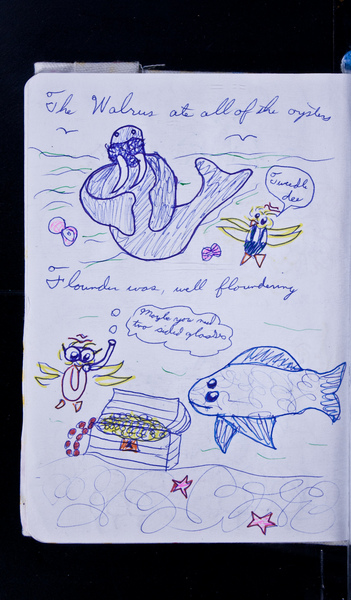 The Walrus ate all of the oysters
Twidle
dee
Flounder was, well floundering
Maybe you need
two sided glasses